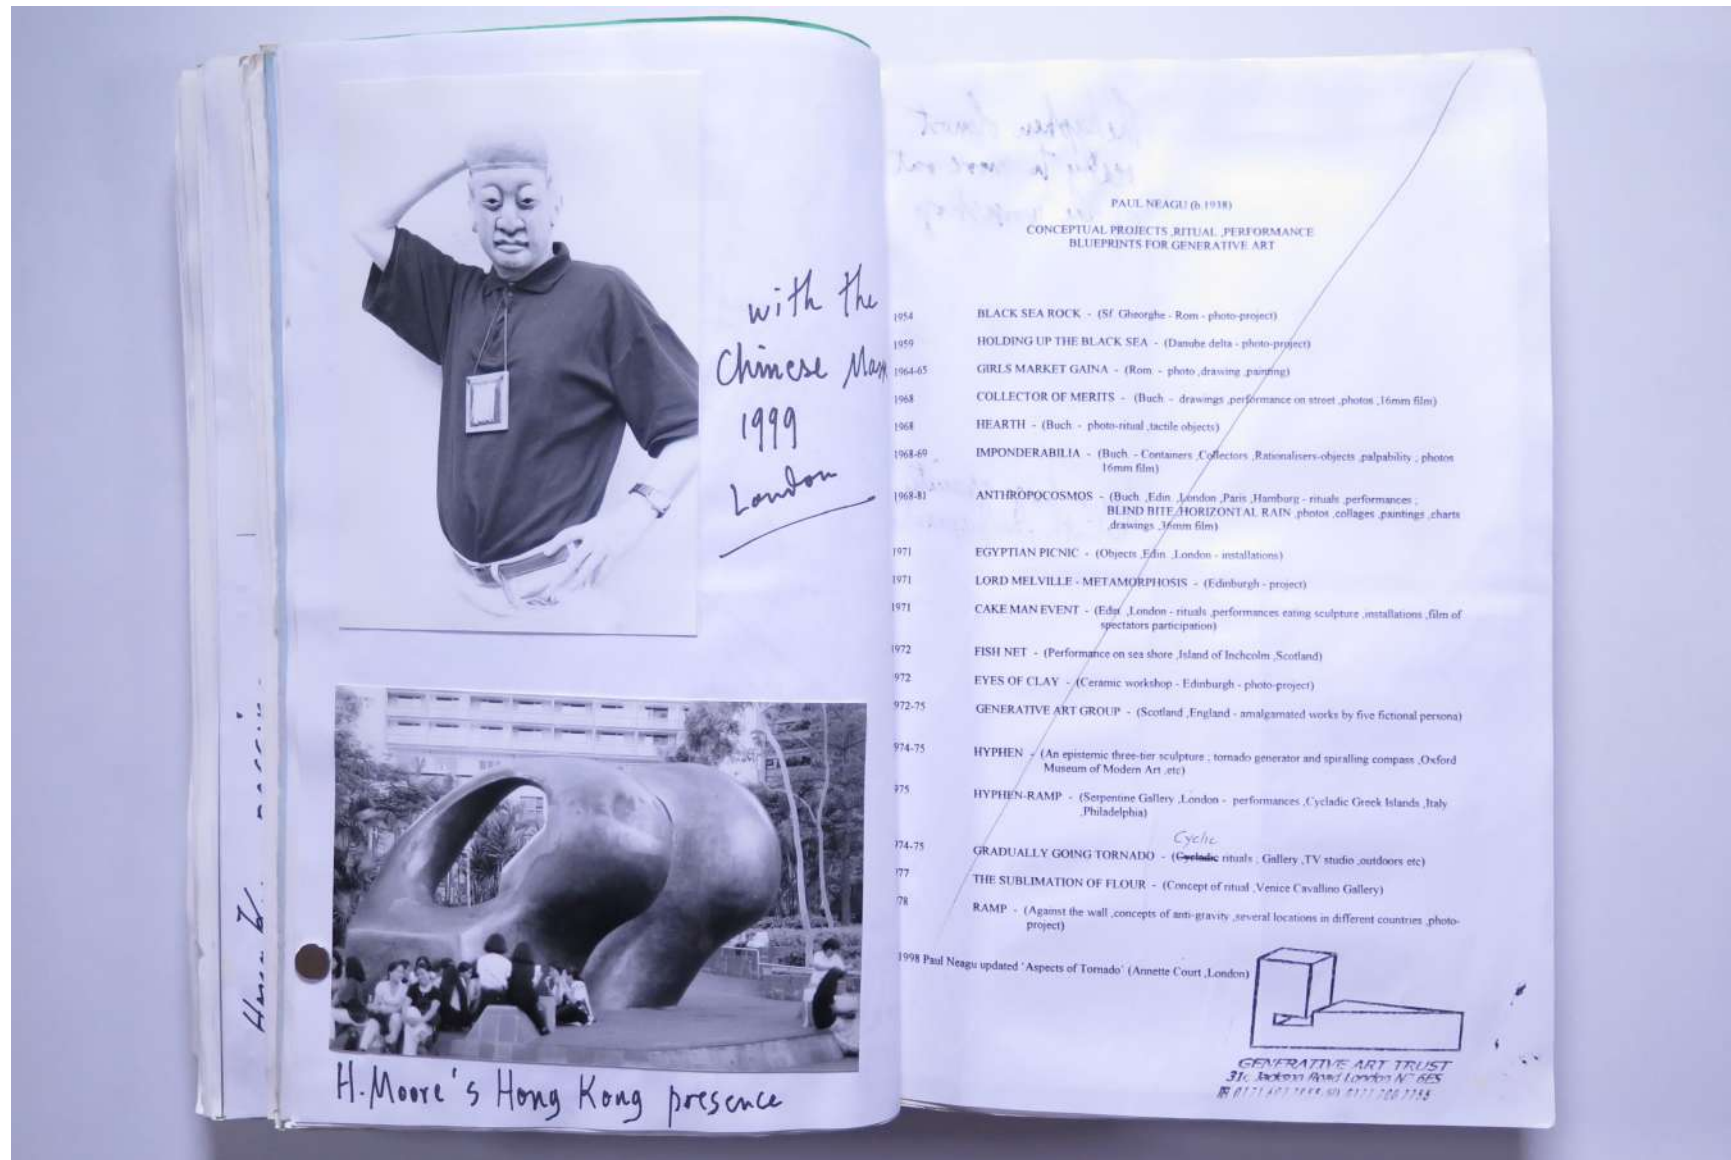 with the
Chinese Mask
1999
London
H. Moore's Hong Kong presence
PAUL NEAGU (b.1938)
CONCEPTUAL PROJECTS ,RITUAL ,PERFORMANCE
BLUEPRINTS FOR GENERATIVE ART
1954 BLACK SEA ROCK - (Sf Gheorghe - Rom - photo-project)
1959 HOLDING UP THE BLACK SEA - (Danube delta - photo-project)
1964-65 GIRLS MARKET GAINA - (Rom - photo ,drawing ,painting)
1968 COLLECTOR OF MERITS - (Buch - drawings ,performance on street ,photos ,16mm film)
1968 HEARTH - (Buch - photo-ritual ,tactile objects)
1968-69 IMPONDERABILIA - (Buch - Containers ,Collectors ,Rationalisers-objects ,palpability ; photos
16mm film)
1968-81 ANTHROPOCOSMOS - (Buch ,Edin ,London ,Paris ,Hamburg - rituals ,performances ;
BLIND BITE ,HORIZONTAL RAIN ,photos ,collages ,paintings ,charts
,drawings ,16mm film)
1971 EGYPTIAN PICNIC - (Objects ,Edin ,London - installations)
1971 LORD MELVILLE - METAMORPHOSIS - (Edinburgh - project)
1971 CAKE MAN EVENT - (Edin ,London - rituals ,performances eating sculpture ,installations ,film of
spectators participation)
1972 FISH NET - (Performance on sea shore ,Island of Inchcolm ,Scotland)
972 EYES OF CLAY - (Ceramic workshop - Edinburgh - photo-project)
972-75 GENERATIVE ART GROUP - (Scotland ,England - amalgamated works by five fictional persona)
974-75 HYPHEN - (An epistemic three-tier sculpture ; tornado generator and spiralling compass ,Oxford
Museum of Modern Art ,etc)
975 HYPHEN-RAMP - (Serpentine Gallery ,London - performances ,Cycladic Greek Islands ,Italy
,Philadelphia)
Cyclic
974-75 GRADUALLY GOING TORNADO - (Cycladic rituals ; Gallery ,TV studio ,outdoors etc)
977 THE SUBLIMATION OF FLOUR - (Concept of ritual ,Venice Cavallino Gallery)
78 RAMP - (Against the wall ,concepts of anti-gravity ,several locations in different countries ,photo-
project)
1998 Paul Neagu updated 'Aspects of Tornado' (Annette Court ,London)
GENERATIVE ART TRUST
31c Jackson Road London N7 6ES